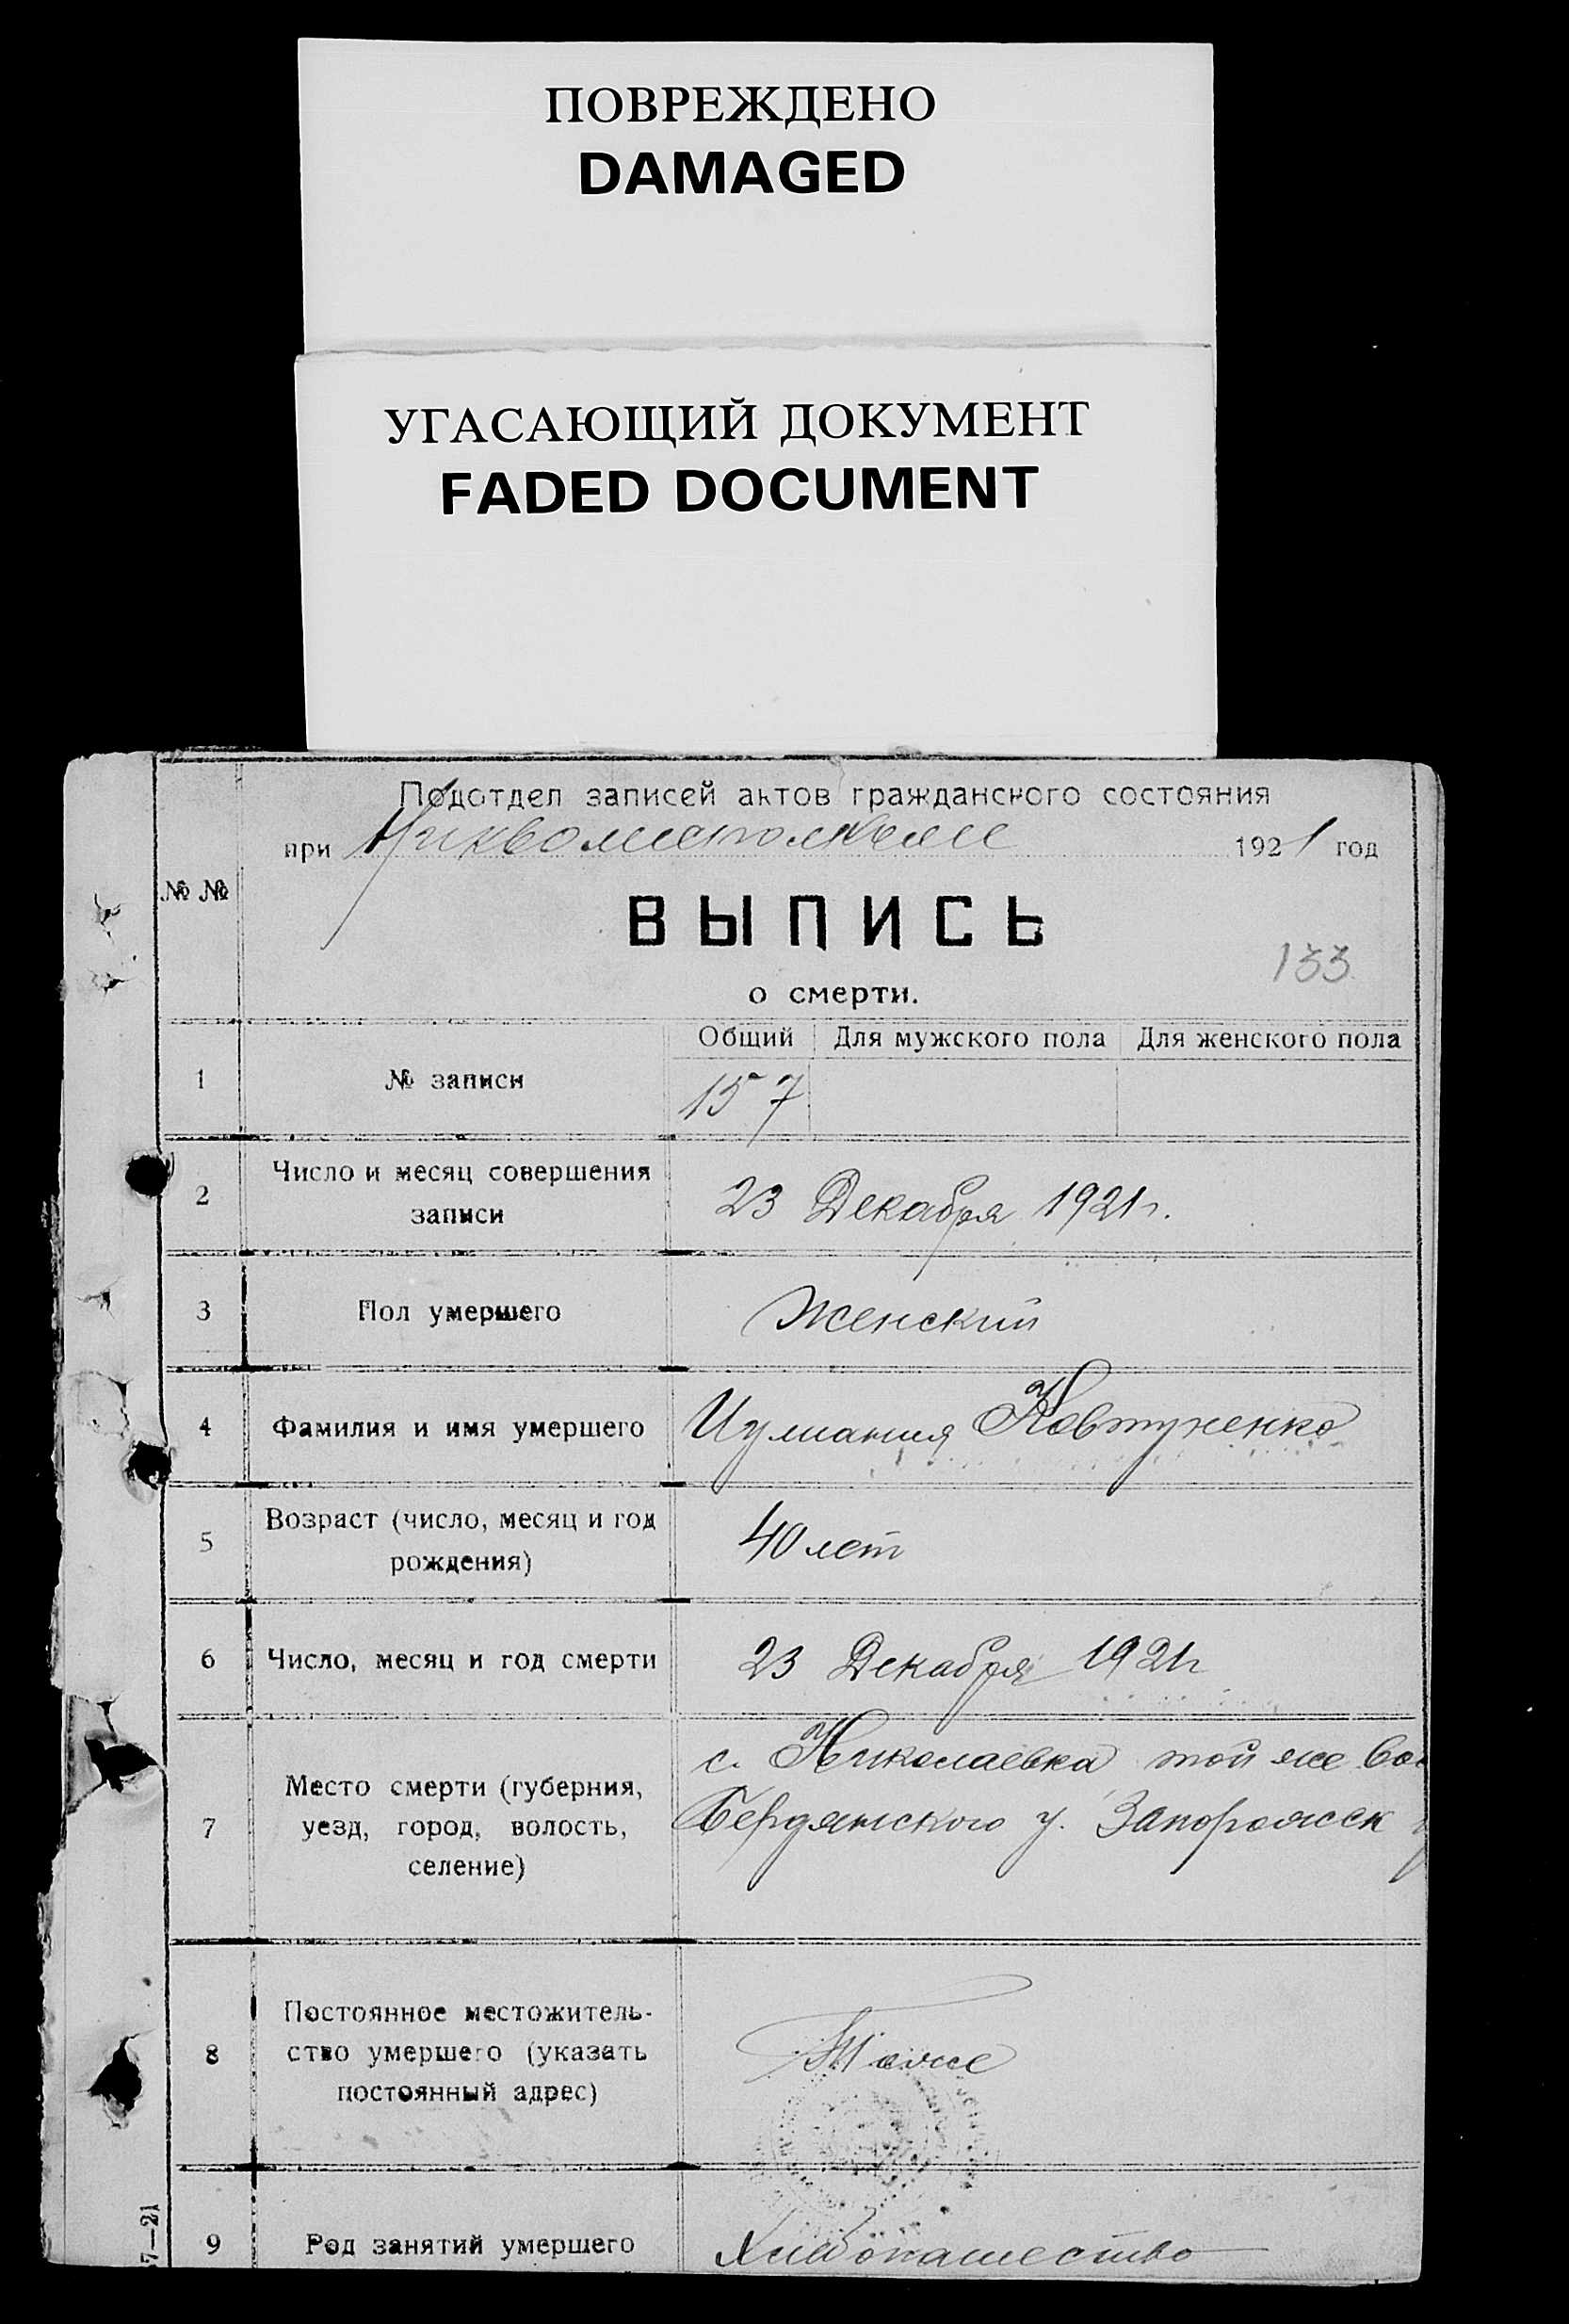 ПОВРЕЖДЕНО
DAMAGED
УГАСАЮЩИЙ ДОКУМЕНТ
FADED DOCUMENT
Подотдел записей актов гражданского состояния
при 1921 год
№ №
ВЫПИСЬ
133
о смерти.
Общий Для мужского пола Для женского пола
1 № записи 157
2 Число и месяц совершения
записи 23 Декабря 1921 г.
3 Пол умершего Женский
4 Фамилия и имя умершего Ковтуненко
5 Возраст (число, месяц и год
рождения) 40 лет
6 Число, месяц и год смерти 23 Декабря 1921 г
с. Николаевка той же Вол
7 Место смерти (губерния,
уезд, город, волость,
селение) Бердянского у. Запорожск
8 Постоянное местожитель-
ство умершего (указать
постоянный адрес) Тоже
9 Род занятий умершего Хлебопашество
7—21